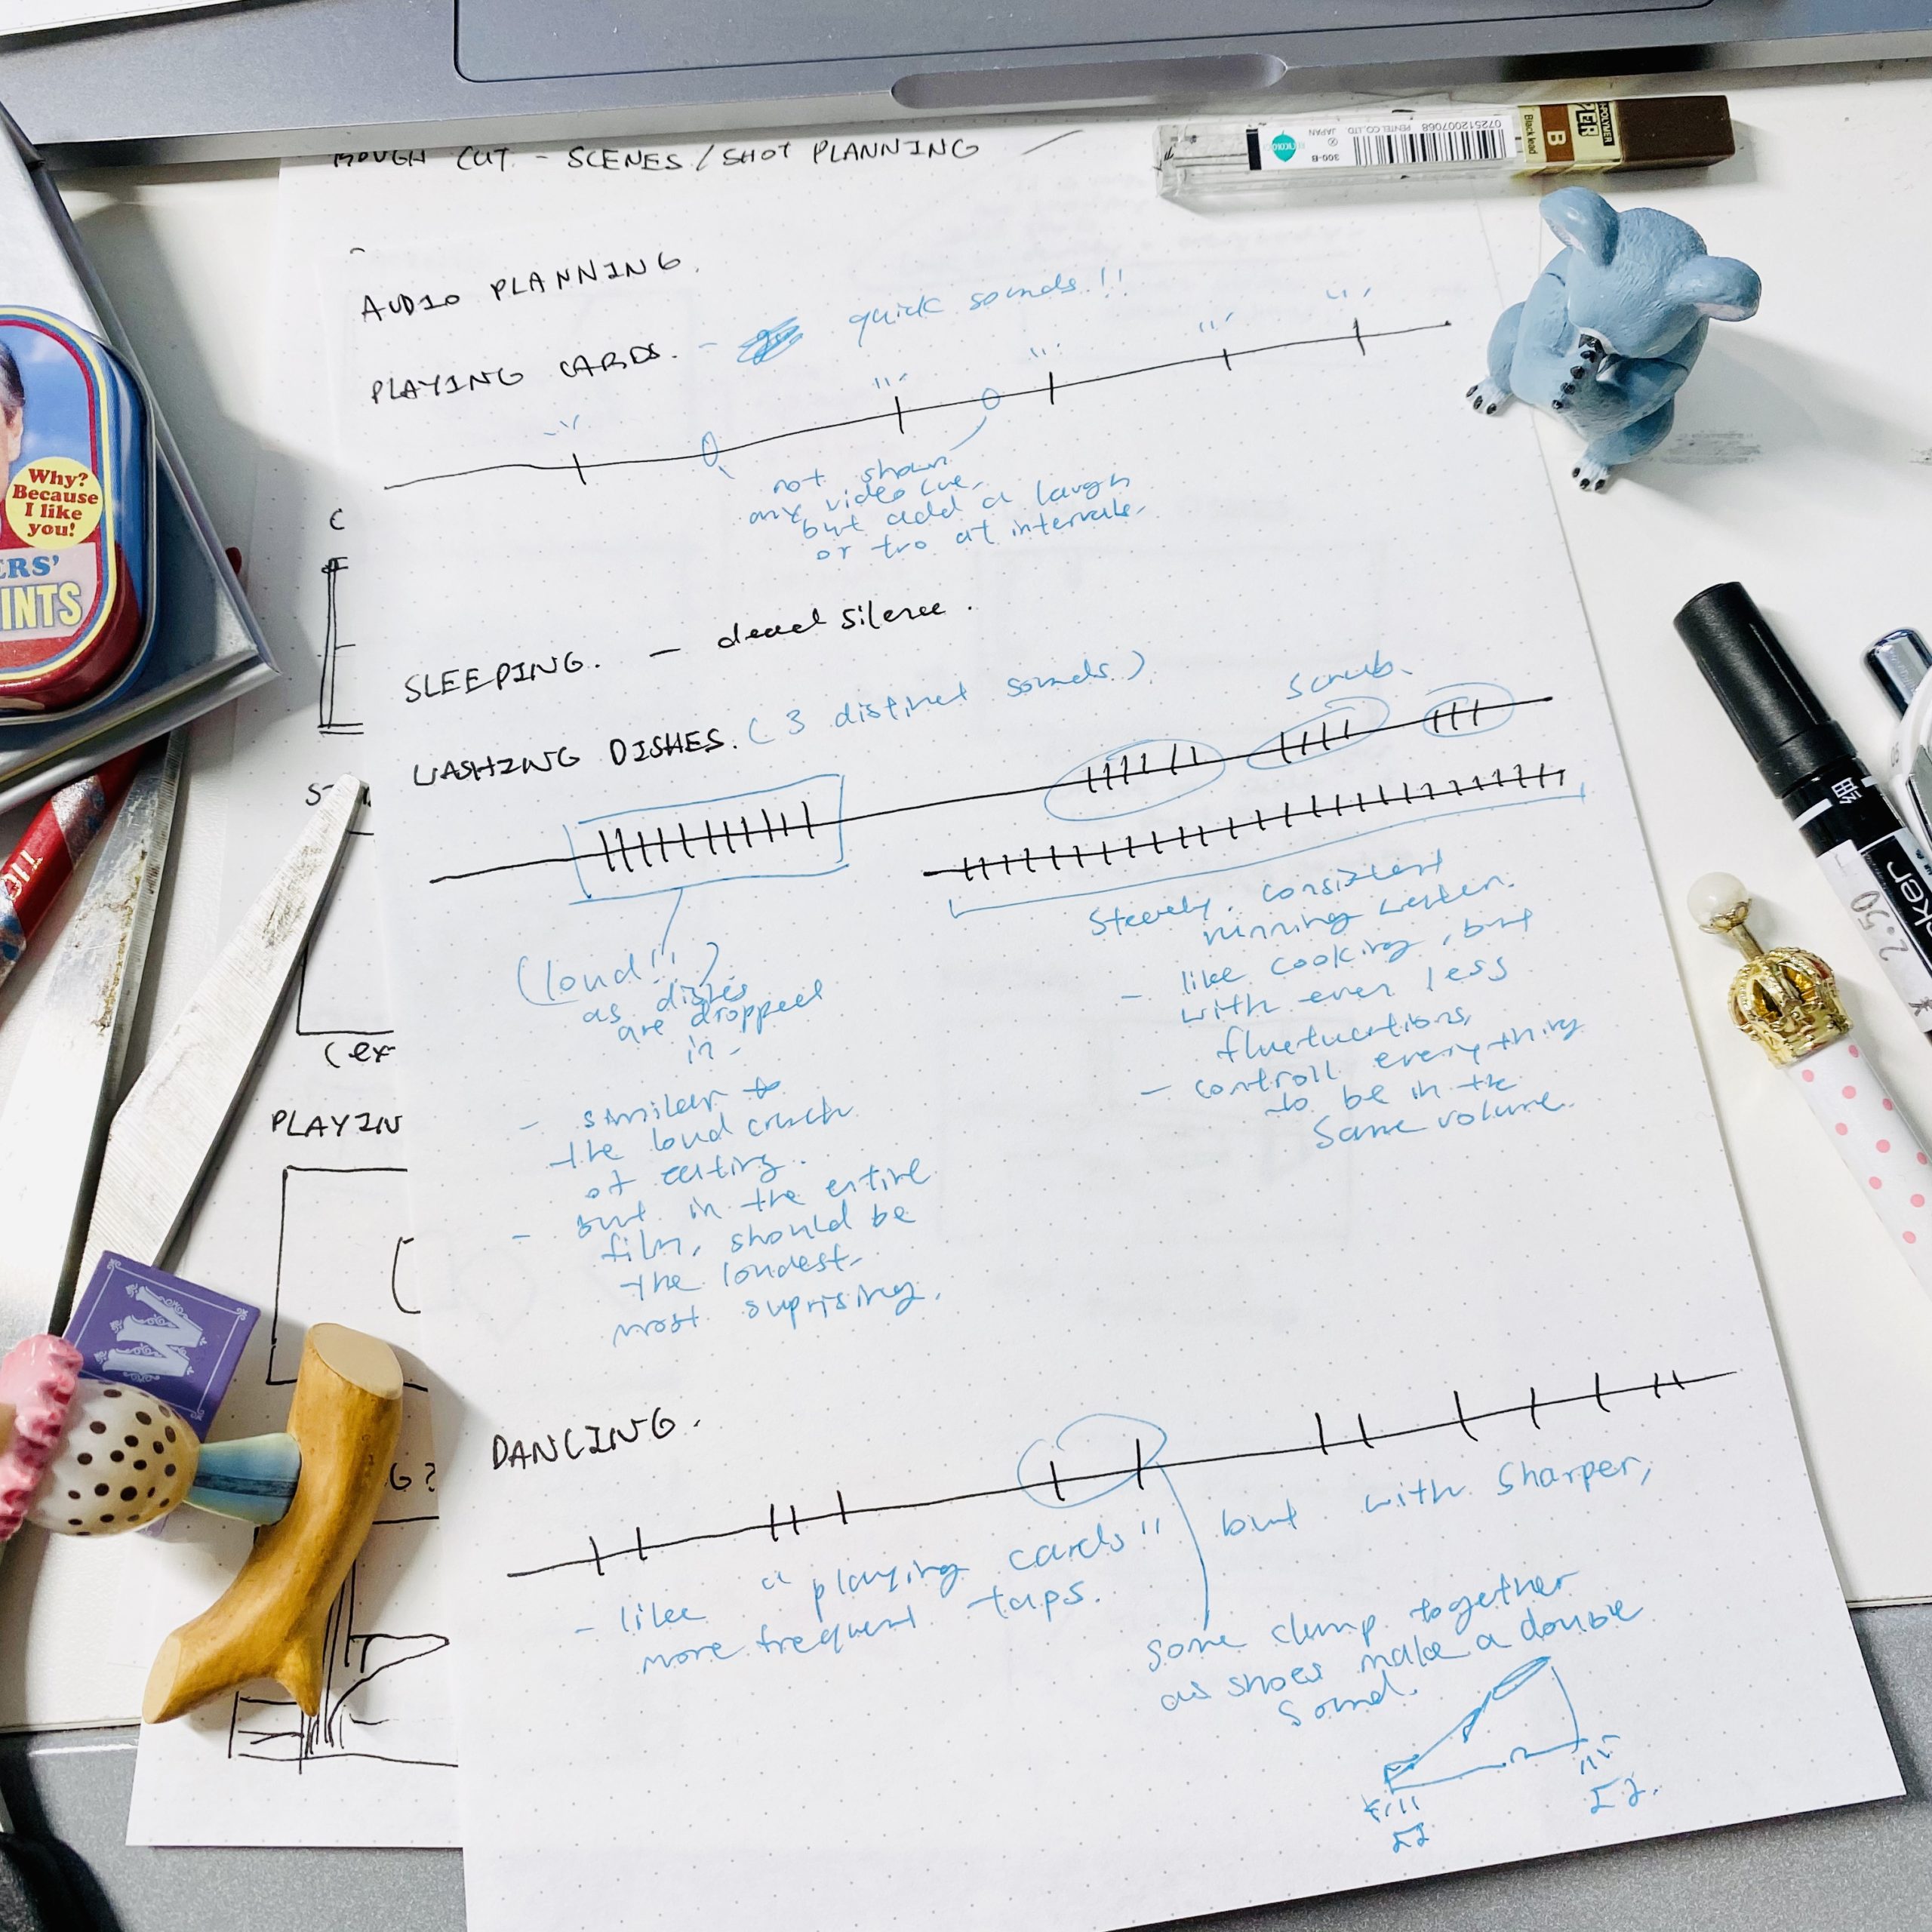 ROUGH CUT - SCENES / SHOT PLANNING
AUDIO PLANNING.
PLAYING CARDS. - quick sounds!!
not shown
any video cue,
but add a laugh
or two at intervals.
SLEEPING. - dead silence.
WASHING DISHES. (3 distinct sounds.)
scrub.
(loud!!)
as dishes
are dropped
in -
- similar to
the loud crunch
of eating.
- but in the entire
film, should be
the loudest -
most suprising.
Steady, consistent
running water.
- like cooking, but
with even less
fluctuations,
- controll everything
to be in the
same volume.
DANCING.
- like "playing cards" but with sharper,
more frequent taps.
some clump together
as shoes make a double
sound.
C
(ex
PLAYIN
G?
Why?
Because
I like
you!
ERS'
INTS
W
072512007068
PENTEL CO., LTD. JAPAN
300-B
B
Black lead
POLYMER
ER
ker
2.50